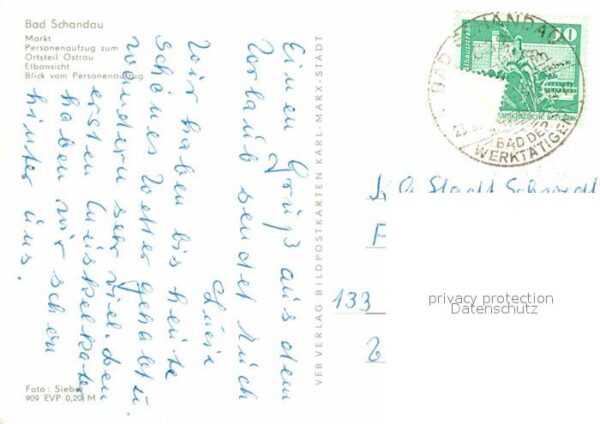 Bad Schandau
Markt
Personenaufzug zum
Ortsteil Ostrau
Elbansicht
Blick vom Personenaufzug
Einen Gruß aus dem
Urlaub sendet Euch
Luzie
Wir haben bis heute
schönes Wetter gehabt u.
wandern sehr viel. Den
ersten Muskelkater
haben wir schon
hinter uns.
VEB VERLAG BILDPOSTKARTEN KARL-MARX-STADT
Foto: Sieber
909 EVP 0,20 M
BAD SCHANDAU
BAD DER
WERKTÄTIGEN
10
Stadt
F
133
privacy protection
Datenschutz